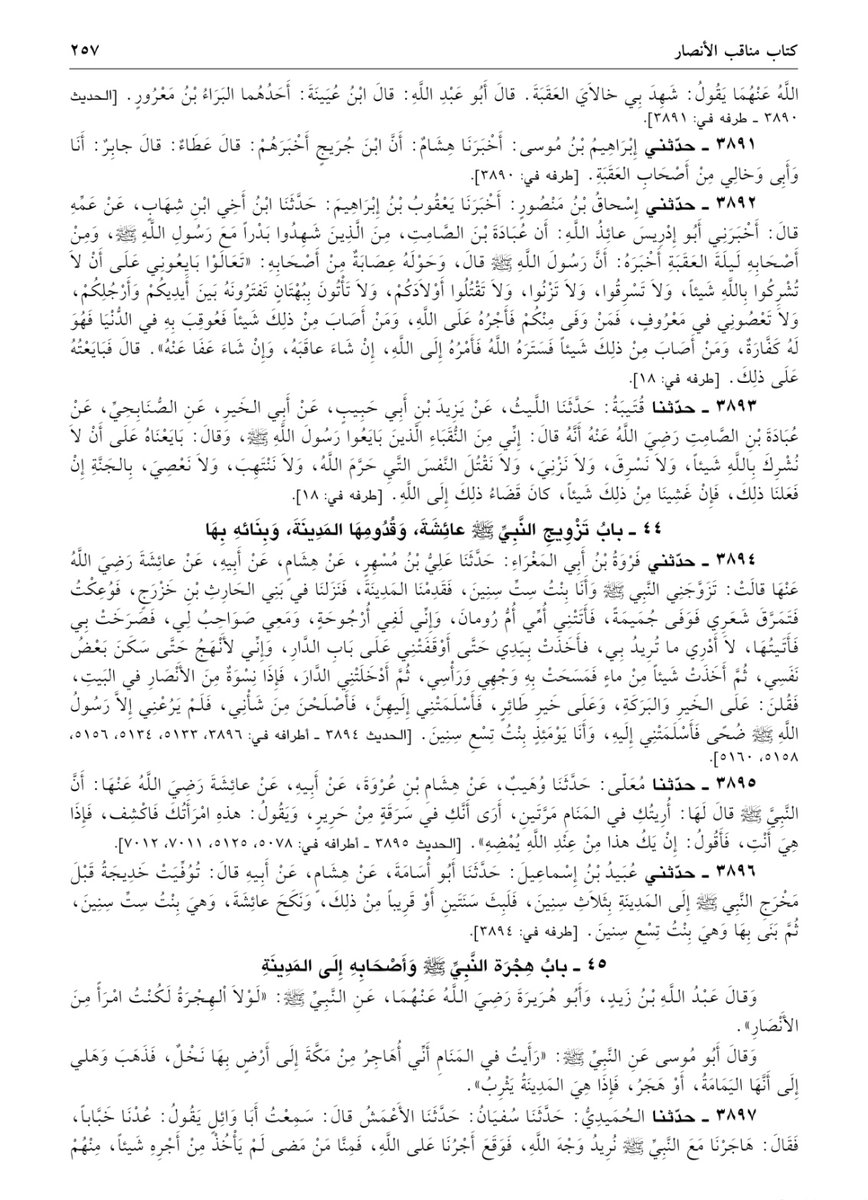 كتاب مناقب الأنصار ٢٥٧
اللَّهُ عَنْهُمَا يَقُولُ: شَهِدَ بِي خالايَ العَقَبَةَ. قالَ أَبُو عَبْدِ اللَّهِ: قالَ ابْنُ عُيَينَةَ: أَحَدُهُما البَرَاءُ بْنُ مَعْرُورٍ. [الحديث
٣٨٩٠ ـ طرفه في: ٣٨٩١].
٣٨٩١ ـ حدّثني إِبْرَاهِيمُ بْنُ مُوسى: أَخْبَرَنَا هِشَامٌ: أَنَّ ابْنَ جُرَيجٍ أَخْبَرَهُمْ: قالَ عَطَاءٌ: قالَ جابِرٌ: أَنَا
وَأَبِي وَخالِي مِنْ أَصْحَابِ العَقَبَةِ. [طرفه في: ٣٨٩٠].
٣٨٩٢ ـ حدّثني إِسْحاقُ بْنُ مَنْصُورٍ: أَخْبَرَنَا يَعْقُوبُ بْنُ إِبْرَاهِيمَ: حَدَّثَنَا ابْنُ أَخِي ابْنِ شِهَابٍ، عَنْ عَمِّهِ
قالَ: أَخْبَرَنِي أَبُو إِدْرِيسَ عائِذُ اللَّهِ: أَن عُبَادَةَ بْنَ الصَّامِتِ، مِنَ الَّذِينَ شَهِدُوا بَدْراً مَعَ رَسُولِ اللَّهِ ﷺ، وَمِنْ
أَصْحَابِهِ لَيلَةَ العَقَبَةِ أَخْبَرَهُ: أَنَّ رَسُولَ اللَّهِ ﷺ قالَ، وَحَوْلَهُ عِصَابَةٌ مِنْ أَصْحَابِهِ: «تَعَالَوْا بَايِعُونِي عَلَى أَنْ لاَ
تُشْرِكُوا بِاللَّهِ شَيئاً، وَلاَ تَسْرِقُوا، وَلاَ تَزْنُوا، وَلاَ تَقْتُلُوا أَوْلاَدَكُمْ، وَلاَ تَأْتُونَ بِبُهْتَانٍ تَفتَرُونَهُ بَينَ أَيدِيكُمْ وَأَرْجُلِكُمْ،
وَلاَ تَعْصُونِي في مَعْرُوفٍ، فَمَنْ وَفَى مِنْكُمْ فَأَجْرُهُ عَلَى اللَّهِ، وَمَنْ أَصَابَ مِنْ ذلِكَ شَيئاً فَعُوقِبَ بِهِ في الدُّنْيَا فَهُوَ
لَهُ كَفَّارَةٌ، وَمَنْ أَصَابَ مِنْ ذلِكَ شَيئاً فَسَتَرَهُ اللَّهُ فَأَمْرُهُ إِلَى اللَّهِ، إِنْ شَاءَ عاقَبَهُ، وَإِنْ شَاءَ عَفَا عَنْهُ». قالَ فَبَايَعْتُهُ
عَلَى ذلِكَ. [طرفه في: ١٨].
٣٨٩٣ ـ حدّثنا قُتَيبَةُ: حَدَّثَنَا اللَّيثُ، عَنْ يَزِيدَ بْنِ أَبي حَبِيبٍ، عَنْ أَبِي الخَيرِ، عَنِ الصُّنَابِحِيِّ، عَنْ
عُبَادَةَ بْنِ الصَّامِتِ رَضِيَ اللَّهُ عَنْهُ أَنَّهُ قالَ: إِنِّي مِنَ النُّقَبَاءِ الَّذِينَ بَايَعُوا رَسُولَ اللَّهِ ﷺ، وَقالَ: بَايَعْنَاهُ عَلَى أَنْ لاَ
نُشْرِكَ بِاللَّهِ شَيئاً، وَلاَ نَسْرِقَ، وَلاَ نَزْنِيَ، وَلاَ نَقْتُلَ النَّفسَ الَّتِي حَرَّمَ اللَّهُ، وَلاَ نَنْتَهِبَ، وَلاَ نَعْصِيَ، بِالجَنَّةِ إِنْ
فَعَلنَا ذلِكَ، فَإِنْ غَشِينَا مِنْ ذلِكَ شَيئاً، كانَ قَضَاءُ ذلِكَ إِلَى اللَّهِ. [طرفه في: ١٨].
٤٤ ـ بابُ تَزْوِيجِ النَّبِيِّ ﷺ عائِشَةَ، وَقُدُومِهَا المَدِينَةَ، وَبِنَائِهِ بِهَا
٣٨٩٤ ـ حدّثني فَرْوَةُ بْنُ أَبي المَغْرَاءِ: حَدَّثَنَا عَلِيُّ بْنُ مُسْهِرٍ، عَنْ هِشَامٍ، عَنْ أَبِيهِ، عَنْ عائِشَةَ رَضِيَ اللَّهُ
عَنْهَا قالَتْ: تَزَوَّجَنِي النَّبِيُّ ﷺ وَأَنَا بِنْتُ سِتِّ سِنِينَ، فَقَدِمْنَا المَدِينَةَ، فَنَزَلنَا في بَنِي الحَارِثِ بْنِ خَزْرَجٍ، فَوُعِكْتُ
فَتَمَرَّقَ شَعَرِي فَوَفَى جُمَيمَةً، فَأَتَتْنِي أُمِّي أُمُّ رُومانَ، وَإِنِّي لَفِي أُرْجُوحَةٍ، وَمَعِي صَوَاحِبُ لِي، فَصَرَخَتْ بِي
فَأَتَيتُهَا، لاَ أَدْرِي ما تُرِيدُ بِي، فأَخَذَتْ بِيَدِي حَتَّى أَوْقَفَتْنِي عَلَى بَابِ الدَّارِ، وَإِنِّي لأَنْهَجُ حَتَّى سَكَنَ بَعْضُ
نَفَسِي، ثُمَّ أَخَذَتْ شَيئاً مِنْ ماءٍ فَمَسَحَتْ بِهِ وَجْهِي وَرَأْسِي، ثُمَّ أَدْخَلَتْنِي الدَّارَ، فَإِذَا نِسْوَةٌ مِنَ الأَنْصَارِ في البَيتِ،
فَقُلنَ: عَلَى الخَيرِ وَالبَرَكَةِ، وَعَلَى خَيرِ طَائِرٍ، فَأَسْلَمَتْنِي إِلَيهِنَّ، فَأَصْلَحْنَ مِنَ شَأْنِي، فَلَمْ يَرُعْنِي إِلاَّ رَسُولُ
اللَّهِ ﷺ ضُحًى فَأَسْلَمَتْنِي إِلَيهِ، وَأَنَا يَوْمَئِذٍ بِنْتُ تِسْعِ سِنِينَ. [الحديث ٣٨٩٤ ـ أطرافه في: ٣٨٩٦، ٥١٣٣، ٥١٣٤، ٥١٥٦،
٥١٥٨، ٥١٦٠].
٣٨٩٥ ـ حدّثنا مُعَلّى: حَدَّثَنَا وُهَيبٌ، عَنْ هِشَامِ بْنِ عُرْوَةَ، عَنْ أَبِيهِ، عَنْ عائِشَةَ رَضِيَ اللَّهُ عَنْهَا: أَنَّ
النَّبِيَّ ﷺ قالَ لَهَا: أُرِيتُكِ في المَنَامِ مَرَّتَينِ، أَرَى أَنَّكِ في سَرَقَةٍ مِنْ حَرِيرٍ، وَيَقُولُ: هذهِ امْرَأَتُكَ فَاكْشِف، فَإِذَا
هِيَ أَنْتِ، فَأَقُولُ: إِنْ يَكُ هذا مِنْ عِنْدِ اللَّهِ يُمْضِهِ». [الحديث ٣٨٩٥ ـ أطرافه في: ٥٠٧٨، ٥١٢٥، ٧٠١١، ٧٠١٢].
٣٨٩٦ ـ حدّثني عُبَيدُ بْنُ إِسْماعِيلَ: حَدَّثَنَا أَبُو أُسَامَةَ، عَنْ هِشَامٍ، عَنْ أَبِيهِ قالَ: تُوُفِّيَتْ خَدِيجَةُ قَبْلَ
مَخْرَجِ النَّبِيِّ ﷺ إِلَى المَدِينَةِ بِثَلاَثِ سِنِينَ، فَلَبِثَ سَنَتَينِ أَوْ قَرِيباً مِنْ ذلِكَ، وَنَكَحَ عائِشَةَ، وَهيَ بِنْتُ سِتِّ سِنِينَ،
ثُمَّ بَنَى بِهَا وَهيَ بِنْتُ تِسْعِ سِنِينَ. [طرفه في: ٣٨٩٤].
٤٥ ـ بابُ هِجْرَةِ النَّبِيِّ ﷺ وَأَصْحَابِهِ إِلَى المَدِينَةِ
وَقالَ عَبْدُ اللَّهِ بْنُ زَيدٍ، وَأَبُو هُرَيرَةَ رَضِيَ اللَّهُ عَنْهُمَا، عَنِ النَّبِيِّ ﷺ: «لَوْلاَ الْهِجْرَةُ لَكُنْتُ امْرَأً مِنَ
الأَنْصَارِ».
وَقالَ أَبُو مُوسى عَنِ النَّبِيِّ ﷺ: «رَأَيتُ في المَنَامِ أَنِّي أُهَاجِرُ مِنْ مَكَّةَ إِلَى أَرْضٍ بِهَا نَخْلٌ، فَذَهَبَ وَهَلِي
إِلَى أَنَّهَا اليَمَامَةُ، أَوْ هَجَرُ، فَإِذَا هِيَ المَدِينَةُ يَثْرِبُ».
٣٨٩٧ ـ حدّثنا الحُمَيدِيُّ: حَدَّثَنَا سُفيَانُ: حَدَّثَنَا الأَعْمَشُ قالَ: سَمِعْتُ أَبَا وَائِلٍ يَقُولُ: عُدْنَا خَبَّاباً،
فَقَالَ: هَاجَرْنَا مَعَ النَّبِيِّ ﷺ نُرِيدُ وَجْهَ اللَّهِ، فَوَقَعَ أَجْرُنَا عَلى اللَّهِ، فَمِنَّا مَنْ مَضى لَمْ يَأْخُذْ مِنْ أَجْرِهِ شَيئاً، مِنْهُمْ